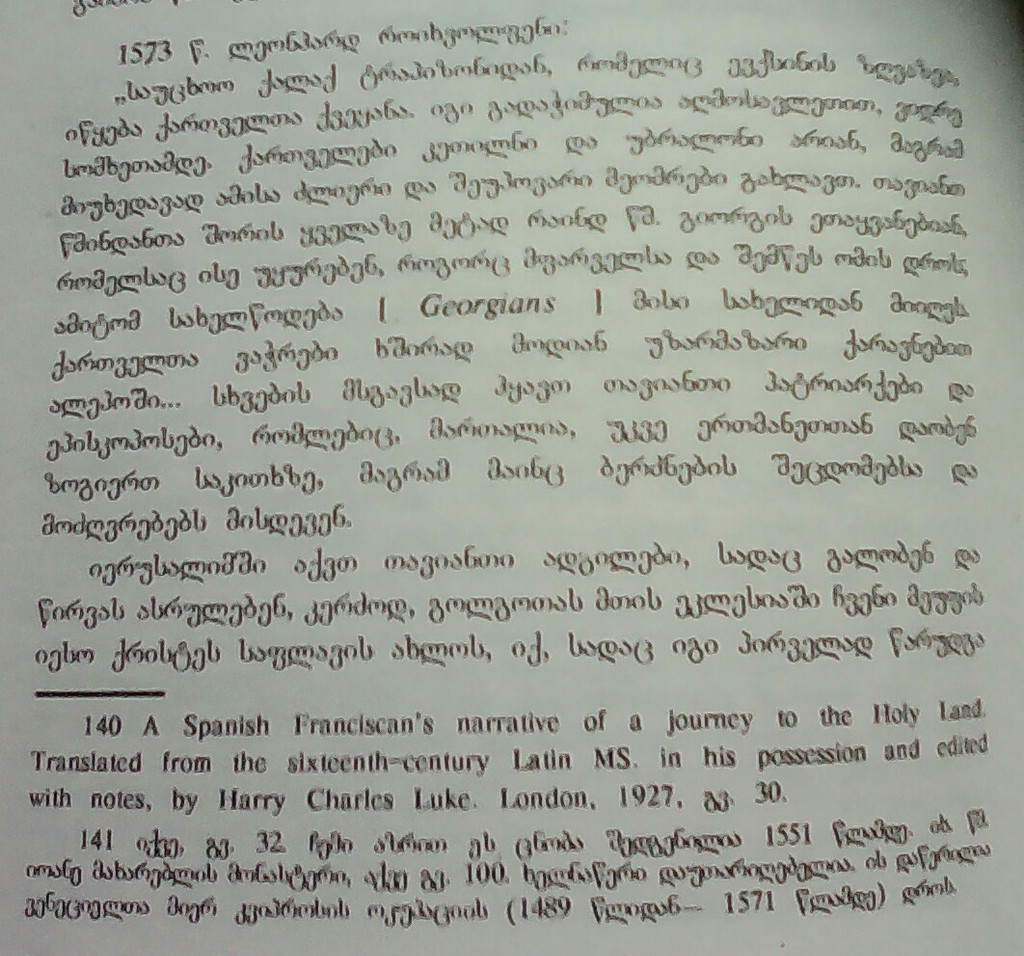 1573 წ. ლეონჰარდ როიხვოლფენი:
„საუცხოო ქალაქ ტრაპიზონიდან, რომელიც ევქსინის ზღვაზეა,
იწყება ქართველთა ქვეყანა. იგი გადაჭიმულია აღმოსავლეთით, ვიდრე
სომხეთამდე. ქართველები კეთილნი და უბრალონი არიან, მაგრამ
მიუხედავად ამისა ძლიერი და შეუპოვარი მეომრები გახლავთ. თავიანთ
წმინდანთა შორის ყველაზე მეტად რაინდ წმ. გიორგის ეთაყვანებიან,
რომელსაც ისე უყურებენ, როგორც მფარველსა და შემწეს ომის დროს,
ამიტომ სახელწოდება | Georgians | მისი სახელიდან მიიღეს
ქართველთა ვაჭრები ხშირად მოდიან უზარმაზარი ქარავნებით
ალეპოში... სხვების მსგავსად ჰყავთ თავიანთი პატრიარქები და
ეპისკოპოსები, რომლებიც, მართალია, უკვე ერთმანეთთან დაობენ
ზოგიერთ საკითხზე, მაგრამ მაინც ბერძნების შეცდომებსა და
მოძღვრებებს მისდევენ.
იერუსალიმში აქვთ თავიანთი ადგილები, სადაც გალობენ და
წირვას ასრულებენ, კერძოდ, გოლგოთას მთის ეკლესიაში ჩვენი მეუფის
იესო ქრისტეს საფლავის ახლოს, იქ, სადაც იგი პირველად წარუდგა
140 A Spanish Franciscan's narrative of a journey to the Holy Land.
Translated from the sixteenth-century Latin MS. in his possession and edited
with notes, by Harry Charles Luke. London, 1927, გვ. 30.
141 იქვე, გვ. 32. ჩემი აზრით ეს ცნობა შედგენილია 1551 წლამდე. იხ წმ
იოანე მახარებლის მონასტერი, იქვე გვ. 100. ხელნაწერი დაუთარიღებელია. ის დაწერილია
ვენეციელთა მიერ კვიპროსის ოკუპაციის (1489 წლიდან— 1571 წლამდე) დროს